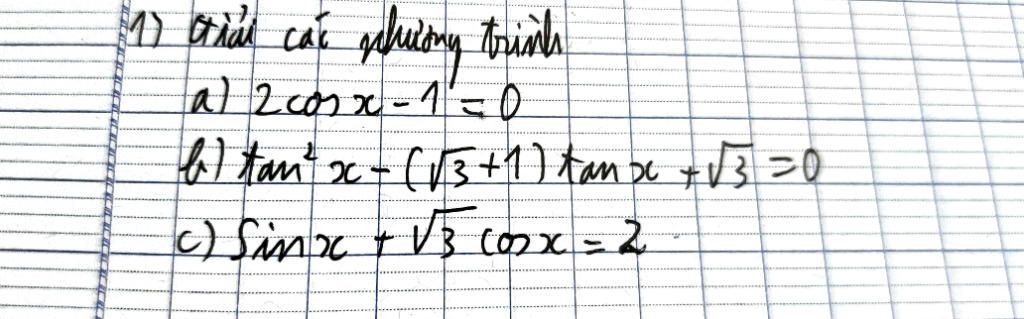 1) Giải các phương trình
a) 2cosx - 1 = 0
b) tan² x - (√3 + 1) tan x + √3 = 0
c) Sinx + √3 cosx = 2